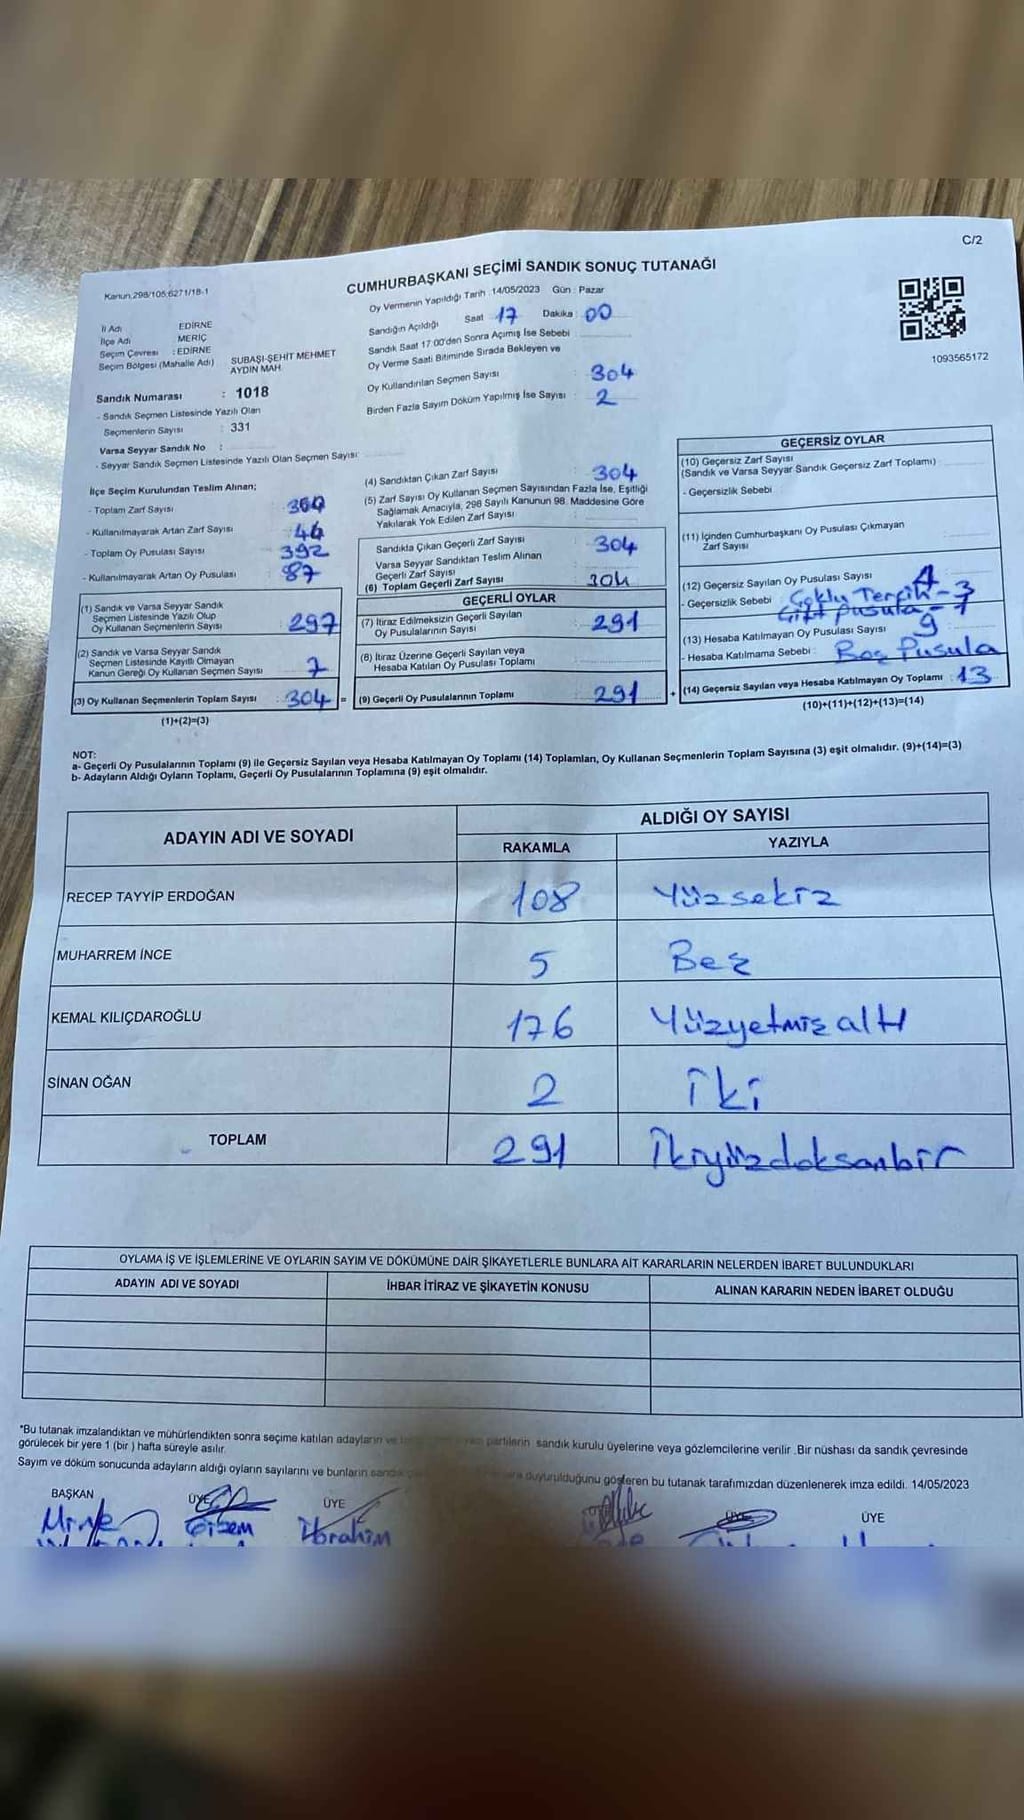 C/2
CUMHURBAŞKANI SEÇİMİ SANDIK SONUÇ TUTANAĞI
Kanun,298/105;6271/18-1
Oy Vermenin Yapıldığı Tarih :14/05/2023 Gün : Pazar
1093565172
İl Adı EDİRNE
İlçe Adı MERİÇ
Seçim Çevresi : EDİRNE
Seçim Bölgesi (Mahalle Adı) SUBAŞI-ŞEHİT MEHMET
AYDIN MAH.
Sandık Numarası : 1018
- Sandık Seçmen Listesinde Yazılı Olan
Seçmenlerin Sayısı : 331
Varsa Seyyar Sandık No :
- Seyyar Sandık Seçmen Listesinde Yazılı Olan Seçmen Sayısı:
Sandığın Açıldığı Saat 17 Dakika : 00
Sandık Saat 17:00'den Sonra Açımış İse Sebebi
Oy Verme Saati Bitiminde Sırada Bekleyen ve
Oy Kullandırılan Seçmen Sayısı : 304
Birden Fazla Sayım Döküm Yapılmış İse Sayısı : 2
İlçe Seçim Kurulundan Teslim Alınan;
- Toplam Zarf Sayısı
- Kullanılmayarak Artan Zarf Sayısı
- Toplam Oy Pusulası Sayısı : 392
- Kullanılmayarak Artan Oy Pusulası : 87
(1) Sandık ve Varsa Seyyar Sandık
Seçmen Listesinde Yazılı Olup
Oy Kullanan Seçmenlerin Sayısı : 297
(2) Sandık ve Varsa Seyyar Sandık
Seçmen Listesinde Kayıtlı Olmayan
Kanun Gereği Oy Kullanan Seçmen Sayısı : 7
(3) Oy Kullanan Seçmenlerin Toplam Sayısı : 304 =
(1)+(2)=(3)
(4) Sandıktan Çıkan Zarf Sayısı : 304
(5) Zarf Sayısı Oy Kullanan Seçmen Sayısından Fazla İse, Eşitliği
Sağlamak Amacıyla, 298 Sayılı Kanunun 98. Maddesine Göre
Yakılarak Yok Edilen Zarf Sayısı
Sandıkta Çıkan Geçerli Zarf Sayısı : 304
Varsa Seyyar Sandıktan Teslim Alınan
Geçerli Zarf Sayısı
(6) Toplam Geçerli Zarf Sayısı : 304
GEÇERLİ OYLAR
(7) İtiraz Edilmeksizin Geçerli Sayılan
Oy Pusulalarının Sayısı : 291
(8) İtiraz Üzerine Geçerli Sayılan veya
Hesaba Katılan Oy Pusulası Toplamı
(9) Geçerli Oy Pusulalarının Toplamı : 291 +
GEÇERSİZ OYLAR
(10) Geçersiz Zarf Sayısı
(Sandık ve Varsa Seyyar Sandık Geçersiz Zarf Toplamı)
- Geçersizlik Sebebi :
(11) İçinden Cumhurbaşkanı Oy Pusulası Çıkmayan
Zarf Sayısı
(12) Geçersiz Sayılan Oy Pusulası Sayısı : 4
- Geçersizlik Sebebi : Çoklu Tercih - 3
Çift pusula - 1
(13) Hesaba Katılmayan Oy Pusulası Sayısı : 9
- Hesaba Katılmama Sebebi : Boş Pusula
(14) Geçersiz Sayılan veya Hesaba Katılmayan Oy Toplamı : 13
(10)+(11)+(12)+(13)=(14)
NOT:
a- Geçerli Oy Pusulalarının Toplamı (9) ile Geçersiz Sayılan veya Hesaba Katılmayan Oy Toplamı (14) Toplamları, Oy Kullanan Seçmenlerin Toplam Sayısına (3) eşit olmalıdır. (9)+(14)=(3)
b- Adayların Aldığı Oyların Toplamı, Geçerli Oy Pusulalarının Toplamına (9) eşit olmalıdır.
ADAYIN ADI VE SOYADI ALDIĞI OY SAYISI
RAKAMLA YAZIYLA
RECEP TAYYİP ERDOĞAN 108 Yüzsekiz
MUHARREM İNCE 5 Beş
KEMAL KILIÇDAROĞLU 176 Yüzyetmiş altı
SİNAN OĞAN 2 İki
TOPLAM 291 İkiyüzdoksanbir
OYLAMA İŞ VE İŞLEMLERİNE VE OYLARIN SAYIM VE DÖKÜMÜNE DAİR ŞİKAYETLERLE BUNLARA AİT KARARLARIN NELERDEN İBARET BULUNDUKLARI
ADAYIN ADI VE SOYADI İHBAR İTİRAZ VE ŞİKAYETİN KONUSU ALINAN KARARIN NEDEN İBARET OLDUĞU
*Bu tutanak imzalandıktan ve mühürlendikten sonra seçime katılan adayların ve partilerin sandık kurulu üyelerine veya gözlemcilerine verilir .Bir nüshası da sandık çevresinde
görülecek bir yere 1 (bir ) hafta süreyle asılır.
Sayım ve döküm sonucunda adayların aldığı oyların sayılarını ve bunların duyurulduğunu gösteren bu tutanak tarafımızdan düzenlenerek imza edildi. 14/05/2023
BAŞKAN ÜYE ÜYE ÜYE ÜYE
Gizem İbrahim